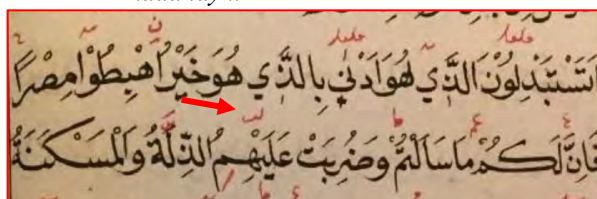 اَتَسْتَبْدِلُونَ الَّذٖي هُوَ اَدْنٰى بِالَّذٖي هُوَ خَيْرٌ اِهْبِطُوا مِصْرًا
فَاِنَّ لَكُمْ مَا سَاَلْتُمْ وَضُرِبَتْ عَلَيْهِمُ الذِّلَّةُ وَالْمَسْكَنَةُ